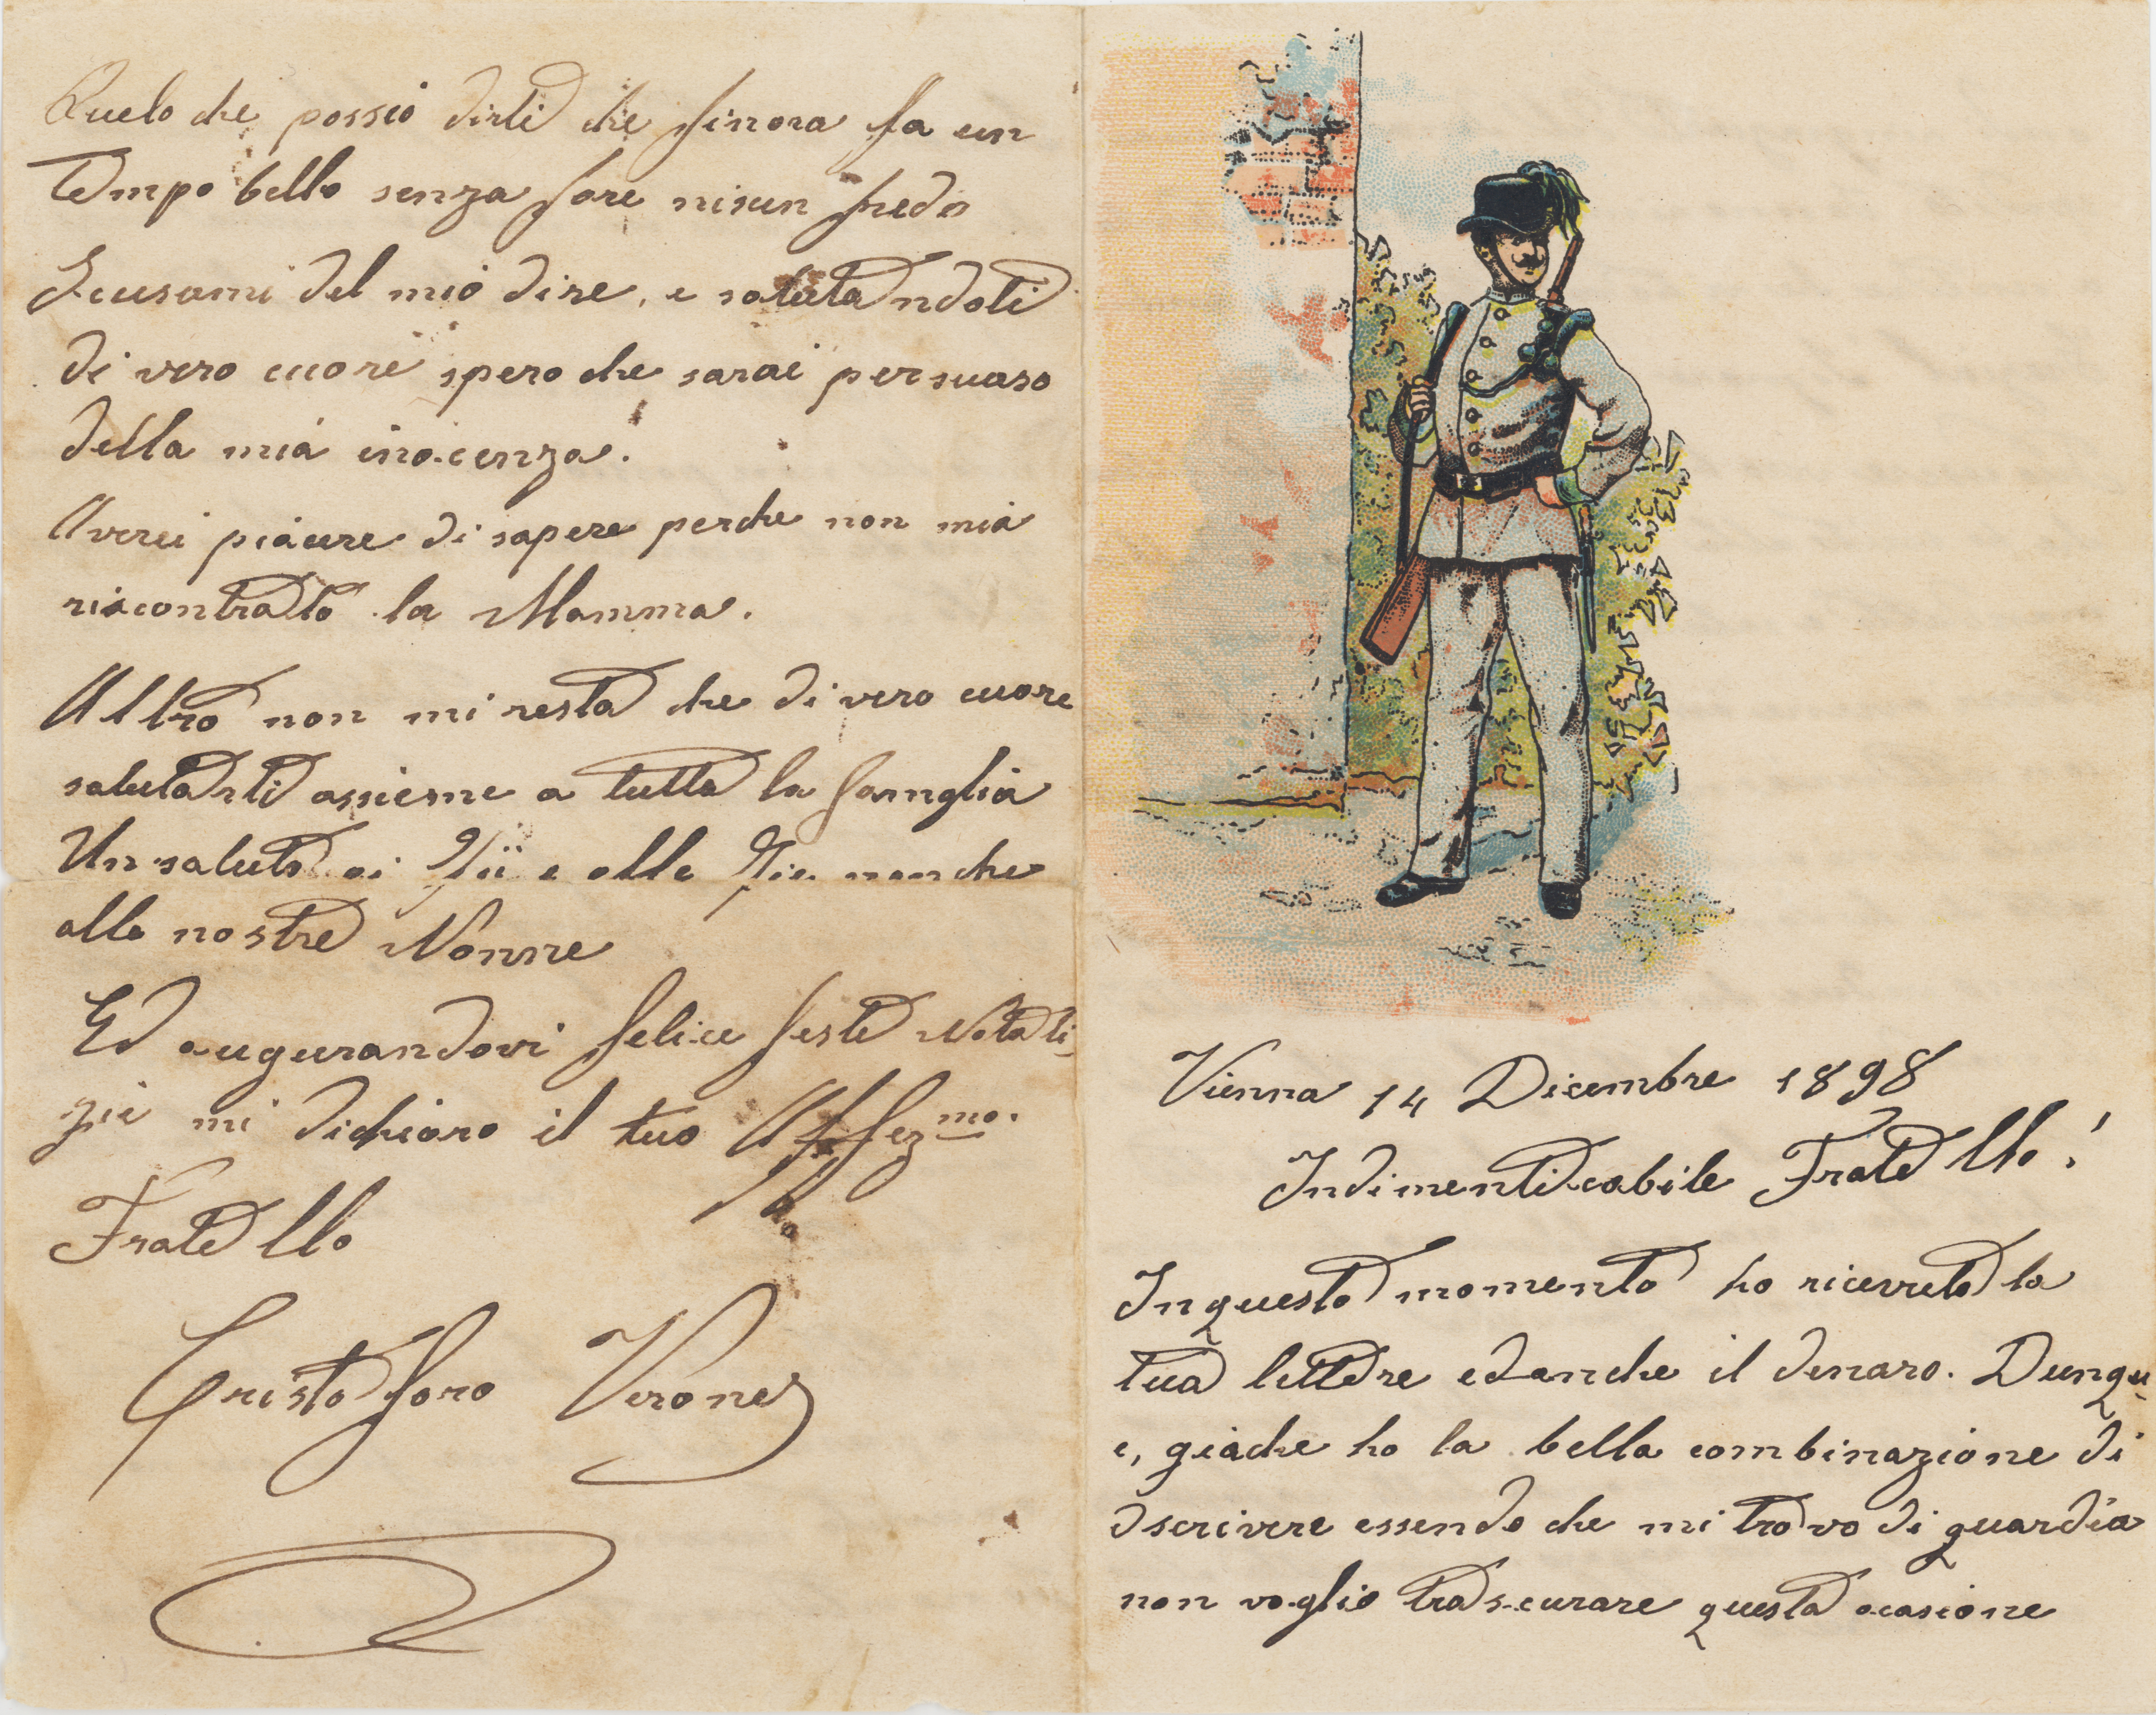 Vienna 14 Dicembre 1898
Indimenticabile Fratello!
In questo momento ho ricevuto la
tua lettere ed anche il denaro. Dunqu
e, giache ho la bella combinazione di
dscrivere essendo che mi trovo di guardia
non voglio trascurare questa ocasione
Quelo che possio dirti che finora fa un
tempo bello senza fare nisun fredo
Scusami del mio dire, e salutandoti
di vero cuore spero che sarai persuaso
della mia inocenza.
Averei piacere di sapere perche non mia
riscontratto la Mamma.
Altro non mi resta che di vero cuore
salutarti assieme a tutta la famglia
Un saluto ai Zii e alle Zie nonche
alle nostre Nonne
Ed augurandovi felice feste Natali
zie mi dichiaro il tuo Affezmo.
Fratello
Cristoforo Verones